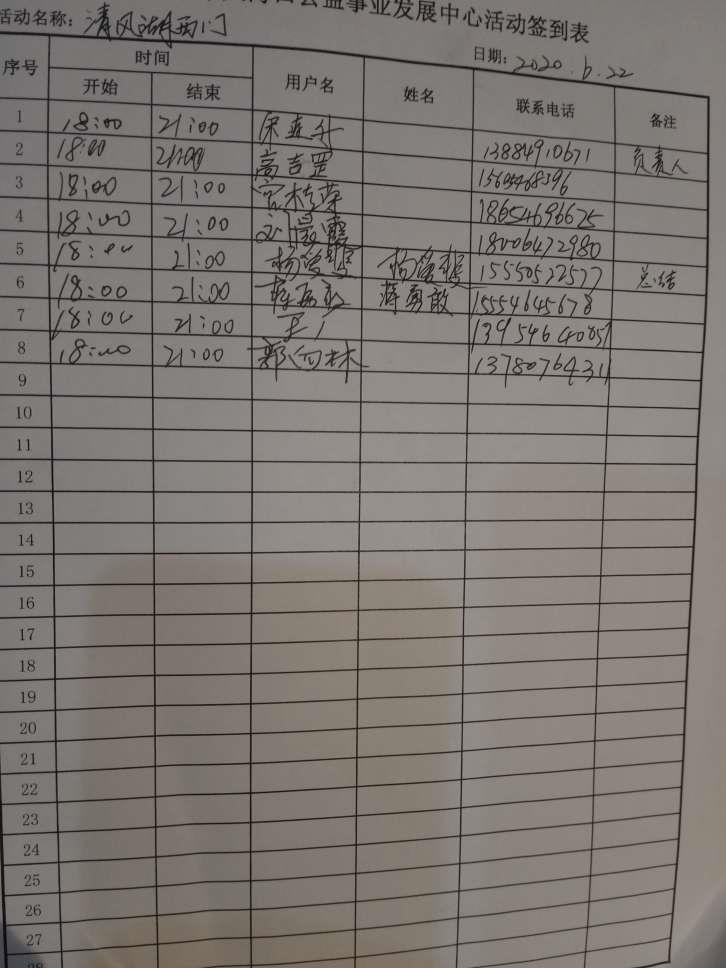 公益事业发展中心活动签到表
活动名称：清风湖西门
日期：2020.6.22
序号 时间 用户名 姓名 联系电话 备注
开始 结束
1 18:00 21:00 13884910671 负责人
2 18:00 21:00 高吉罡 15605468396
3 18:00 21:00 宫桂荣 18654696625
4 18:00 21:00 18006472980
5 18:00 21:00 15550522577 总结
6 18:00 21:00 蒋勇敢 蒋勇敢 15554645678
7 18:00 21:00 王丁 13954640857
8 18:00 21:00 郭向林 13780764311
9
10
11
12
13
14
15
16
17
18
19
20
21
22
23
24
25
26
27
28